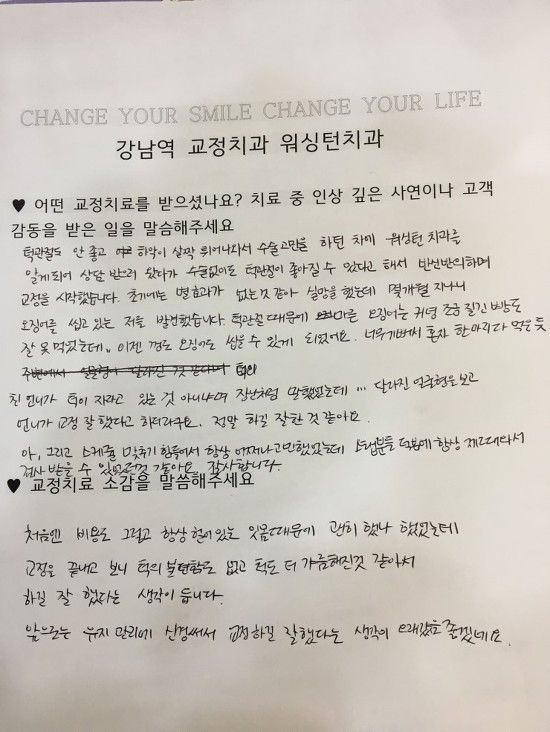 CHANGE YOUR SMILE CHANGE YOUR LIFE
강남역 교정치과 워싱턴치과
♥ 어떤 교정치료를 받으셨나요? 치료 중 인상 깊은 사연이나 고객
감동을 받은 일을 말씀해주세요
턱관절도 안 좋고 하악이 살짝 튀어나와서 수술고민을 하던 차에 워싱턴 치과를
알게되어 상담 받으러 왔다가 수술없이도 턱관절이 좋아질 수 있다고 해서 반신반의하며
교정을 시작했습니다. 초기에는 별효과가 없는것 같아 실망을 했는데 몇개월 지나니
오징어를 씹고 있는 저를 발견했습니다. 턱관절 때문에 마른 오징어는 커녕 조금 질긴 빵도
잘 못 먹었는데.. 이젠 껌도 오징어도 씹을 수 있게 되었어요. 너무기뻐서 혼자 한마리 다 먹은듯
친 언니가 턱이 자라고 있는 것 아니냐며 장난처럼 말했었는데 … 달라진 얼굴형을 보고
언니가 교정 잘 했다고 하더라구요. 정말 하길 잘한 것 같아요.
아, 그리고 스케줄 맞추기 힘들어서 항상 어쩌나 고민했었는데 스탭분들 덕분에 항상 제때와서
검사 받을 수 있었던것 같아요. 감사합니다.
♥ 교정치료 소감을 말씀해주세요
처음엔 비용도 그렇고 항상 현이있는 잇몸때문에 괜히 했나 했었는데
교정을 끝내고 보니 턱의 불편함도 없고 턱도 더 갸름해진것 같아서
하길 잘 했다는 생각이 듭니다.
앞으로는 유지 관리에 신경써서 교정하길 잘했다는 생각이 오래갔으면 좋겠네요.